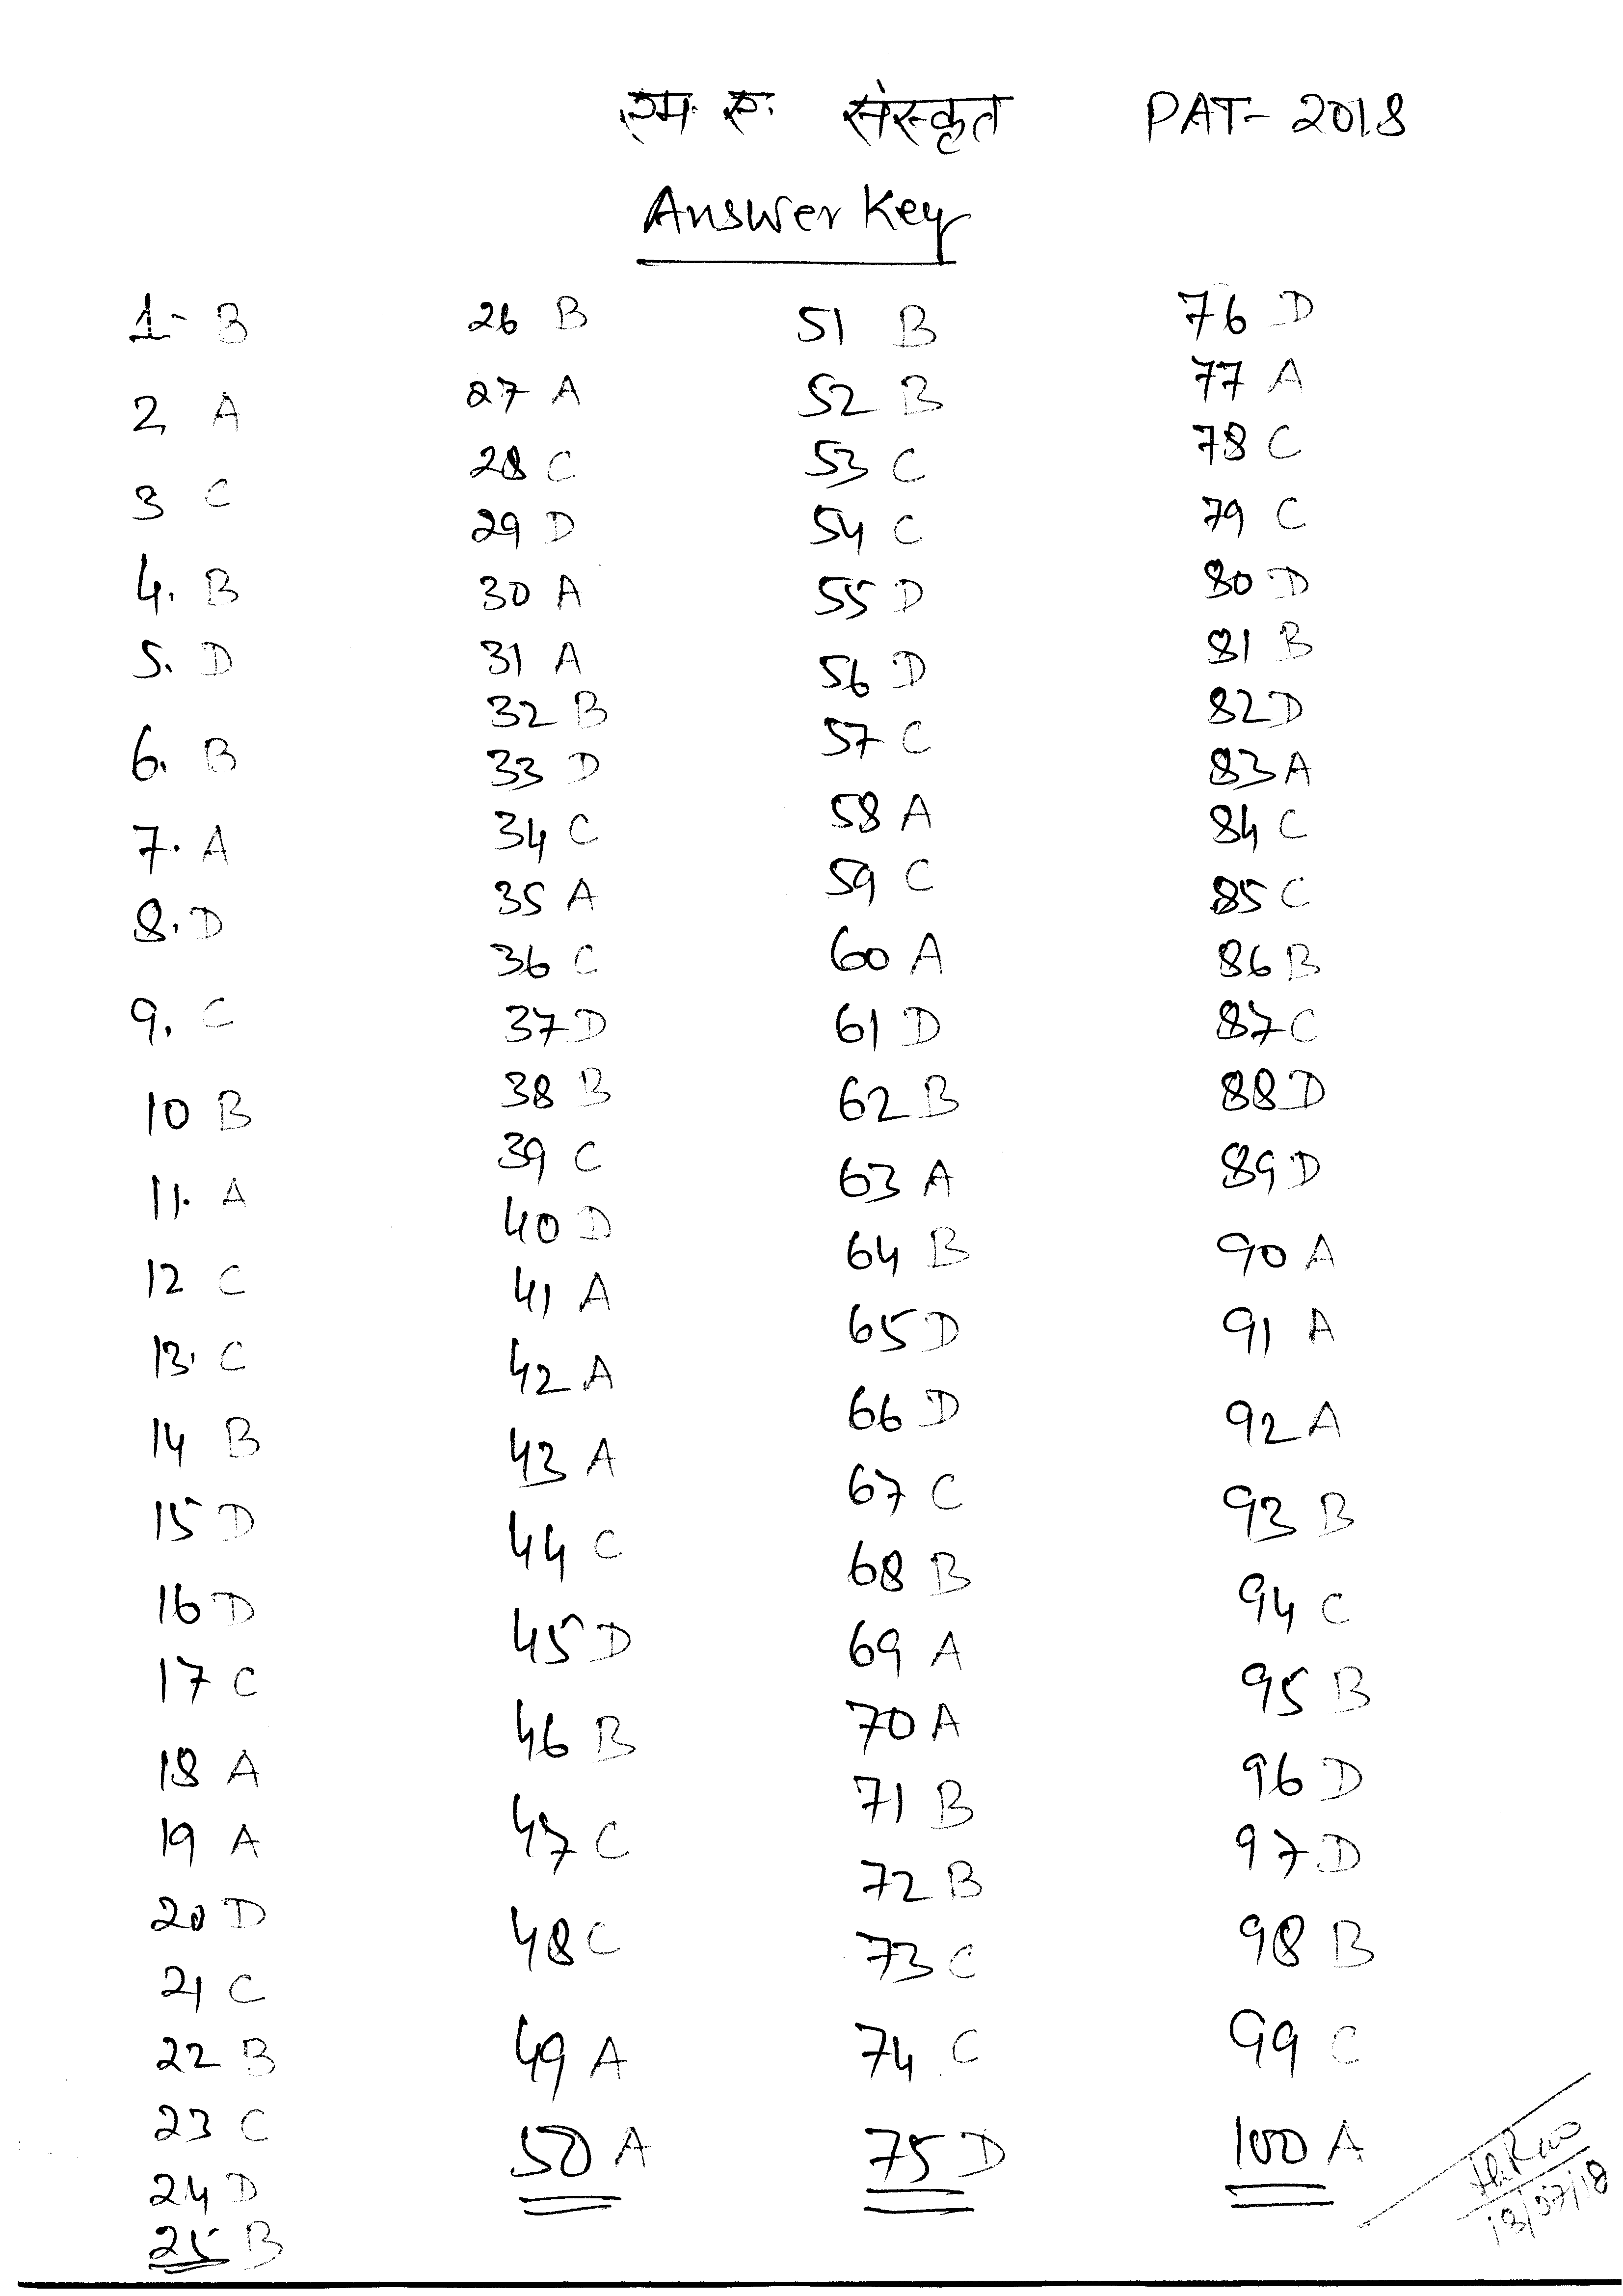 एम. ए. संस्कृत PAT- 2018
Answer Key
1- B
2 A
3 C
4. B
5. D
6. B
7. A
8. D
9. C
10 B
11. A
12 C
13. C
14 B
15 D
16 D
17 C
18 A
19 A
20 D
21 C
22 B
23 C
24 D
25 B
26 B
27 A
28 C
29 D
30 A
31 A
32 B
33 D
34 C
35 A
36 C
37 D
38 B
39 C
40 D
41 A
42 A
43 A
44 C
45 D
46 B
47 C
48 C
49 A
50 A
51 B
52 B
53 C
54 C
55 D
56 D
57 C
58 A
59 C
60 A
61 D
62 B
63 A
64 B
65 D
66 D
67 C
68 B
69 A
70 A
71 B
72 B
73 C
74 C
75 D
76 D
77 A
78 C
79 C
80 D
81 B
82 D
83 A
84 C
85 C
86 B
87 C
88 D
89 D
90 A
91 A
92 A
93 B
94 C
95 B
96 D
97 D
98 B
99 C
100 A